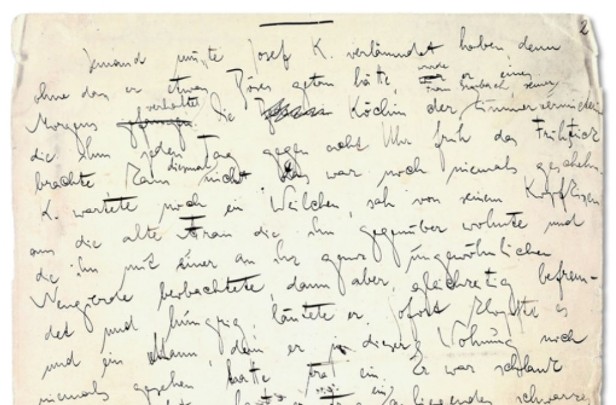 2
Jemand musste Josef K. verläumdet haben denn
ohne dass er etwas Böses getan hätte, wurde er eines
Morgens verhaftet. Die Köchin der Zimmervermieterin
Frau Grubach, seiner
die ihm jeden Tag gegen acht Uhr früh das Frühstück
brachte kam diesmal nicht. Das war noch niemals geschehn.
K. wartete noch ein Weilchen, sah von seinem Kopfkissen
aus die alte Frau die ihm gegenüber wohnte und
die ihn mit einer an ihr ganz ungewöhnlichen
Neugierde beobachtete, dann aber, gleichzeitig befrem-
det und hungrig, läutete er. Sofort klopfte es
und ein Mann, den er in dieser Wohnung noch
niemals gesehen hatte trat ein. Er war schlank
anliegendes schwarzes